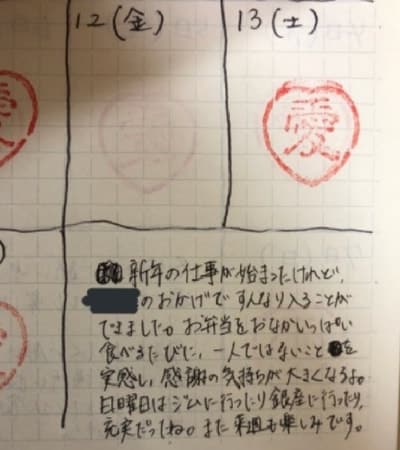 12(金)
13(土)
愛
新年の仕事が始まったけれど、
のおかげですんなり入ることが
できました。お弁当をおなかいっぱい
食べるたびに、一人ではないことを
実感し、感謝の気持ちが大きくなるよ。
日曜日はジムに行ったり銀座に行ったり、
充実だったね。また来週も楽しみです。